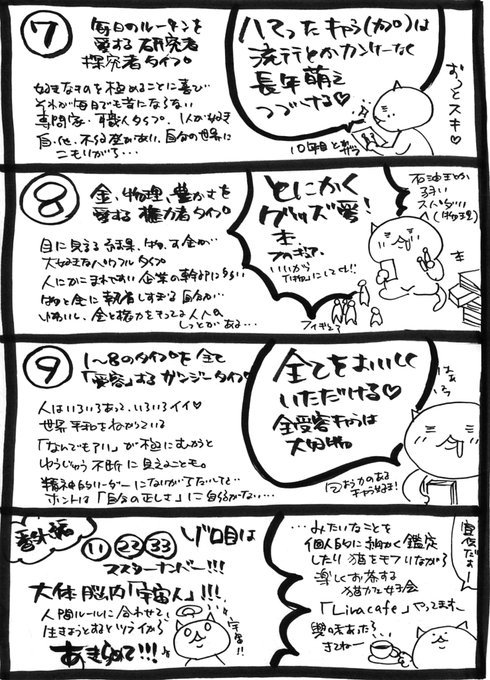 7
毎日のルーチンを
愛する研究者
探究者タイプ
好きなものを極めることに喜び
それが毎日でも苦にならない
専門家・職人タイプ。1人が好き
自分の世界に
こもりがち…
ハマったキャラ(カプ)は
流行とかカンケーなく
長年萌え
つづける♡
おっとスキ♡
10年目
8
金、物理、豊かさを
愛する権力者タイプ
目に見える結果、物、お金が
大好きなパワフルタイプ
人にかこまれやすい企業の幹部にも多い
物と金に執着しすぎる自分が
金と権力をもってる人への
しっとがある…
とにかく
グッズ愛!
本
フィギュア
いいから
石油王か
フィギュア
9
1〜8のタイプを全て
「受容」するガンジータイプ
人はいろいろあって、いろいろイイ♡
世界平和をねがっている
「なんでもアリ」が極にむかうと
ゆうじゅう不断に見えることも。
精神的リーダーに
ホントは「自分の正しさ」に自信がない…
全てをおいしく
いただける♡
全受容キャラは
大好物
番外編
11 22 33
ゾロ目は
マスターナンバー!!!
大体脳内「宇宙人」!!!
人間ルールに合わせて
生きようとするとツライから
あきらめて!!!
宇宙!!
…みたいなことを
個人的に細かく鑑定
したり猫をモフりながら
楽しくお茶する
猫カフェ女子会
「Livacafe」やってます。
興味あったら
きてねー
宣伝だよー